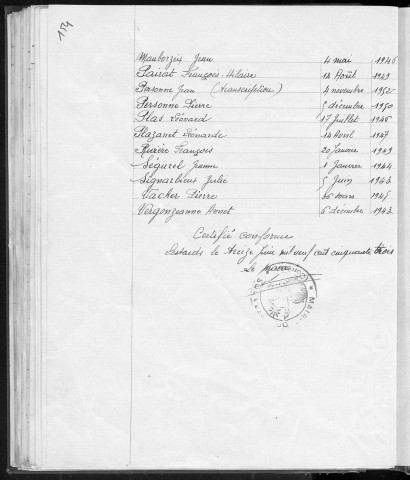 154
Mauborzeix Jean 4 mai 1946
Pairat François-Hilaire 14 Août 1949
Personne Jean (transcription) 4 novembre 1952
Personne Pierre 5 décembre 1950
Plas Léonard 17 Juillet 1946
Plazanet Léonarde 14 Avril 1947
Rivière François 20 Janvier 1949
Ségurel Jeanne 1 Janvier 1944
Signarbieux Julie 5 Juin 1943
Vacher Pierre 26 mars 1945
Vergonjeanne Annet 6 décembre 1943
Certifié conforme
le treize Juin mil neuf cent cinquante trois
Le Maire